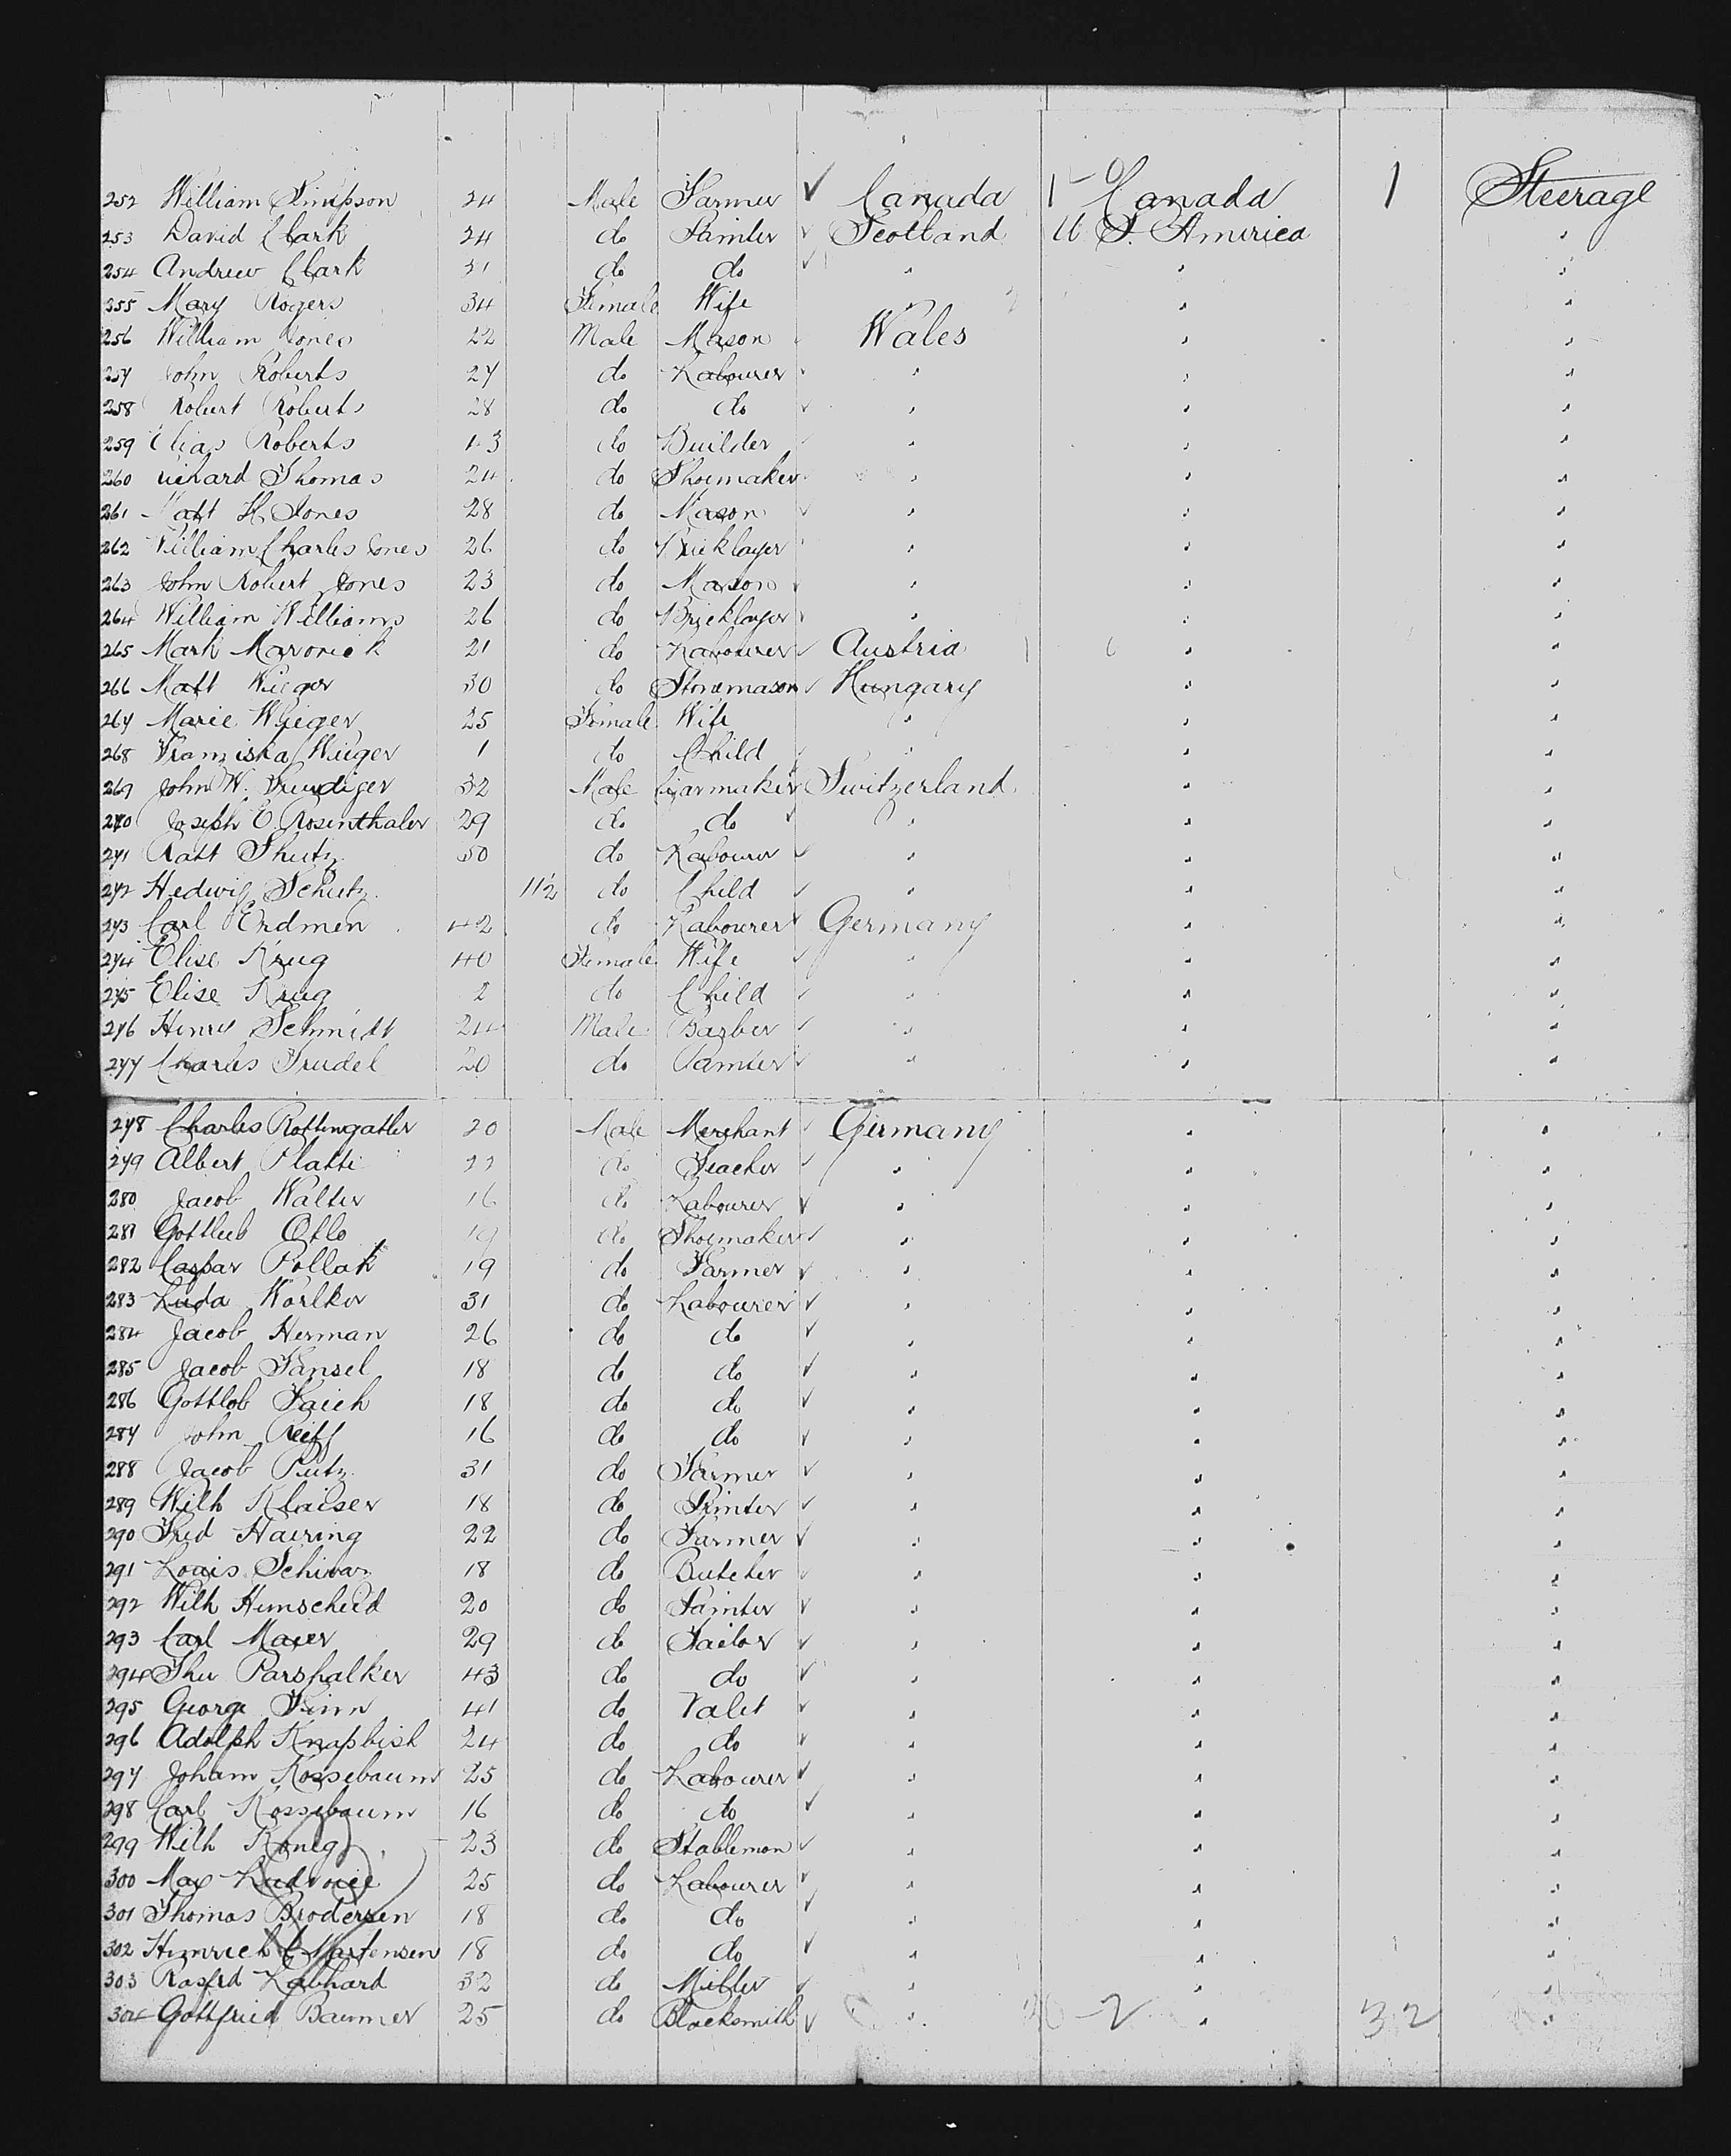 252 William Simpson 24 Male Farmer ✓ Canada 1-0 Canada 1 Steerage
253 David Clark 24 do Painter ✓ Scotland U S. America "
254 Andrew Clark 31 do do ✓ " " "
255 Mary Rogers 34 Female Wife " " "
256 William Jones 22 Male Mason Wales " "
257 John Roberts 27 do Labourer " " "
258 Robert Roberts 28 do do ✓ " " "
259 Elias Roberts 43 do Builder " " "
260 Richard Thomas 24 do Shoemaker " " "
261 Matt H. Jones 28 do Mason ✓ " " "
262 William Charles Jones 26 do Bricklayer " " "
263 John Robert Jones 23 do Mason ✓ " " "
264 William Williams 26 do Bricklayer " " "
265 Mark Mavorick 21 do Labourer ✓ Austria " "
266 Matt Wieger 30 do Stonemason ✓ Hungary " "
267 Marie Wieger 25 Female Wife " " "
268 Franziska Wieger 1 do Child ✓ " " "
269 John W. 32 Male Cigarmaker Switzerland " "
270 Joseph E. Rosenthaler 29 do do ✓ " " "
271 Shutz 50 do Labourer ✓ " " "
272 Hedwig Schutz 11½ do Child ✓ " " "
273 Carl Erdmen 42 do Labourer ✓ Germany " "
274 Elise Krug 40 Female Wife ✓ " " "
275 Elise Krug 2 do Child ✓ " " "
276 Henry Schmidt 24 Male Barber ✓ " " "
277 Charles Trudel 20 do Painter ✓ " " "
278 Charles Rottengatter 20 Male Merchant ✓ Germany " "
279 Albert Platte 22 do Teacher ✓ " " "
280 Jacob Walter 16 do Labourer ✓ " " "
281 Gottlieb Otto 19 do Shoemaker ✓ " " "
282 Caspar Pollak 19 do Farmer ✓ " " "
283 Luda 31 do Labourer ✓ " " "
284 Jacob Herman 26 do do ✓ " " "
285 Jacob Fansel 18 do do ✓ " " "
286 Gottlob Faich 18 do do ✓ " " "
287 John Reiff 16 do do ✓ " " "
288 Jacob Putz 31 do Farmer ✓ " " "
289 Wilh Klaiser 18 do Printer ✓ " " "
290 Fred Hairing 22 do Farmer ✓ " " "
291 Louis Schwaz 18 do Butcher ✓ " " "
292 Wilh Hemscheid 20 do Painter ✓ " " "
293 Carl Maier 29 do Tailor ✓ " " "
294 Parshalker 43 do do ✓ " " "
295 George Finn 41 do Valet ✓ " " "
296 Adolph Knapbish 24 do do ✓ " " "
297 Johann Kossebaum 25 do Labourer ✓ " " "
298 Carl Kossebaum 16 do do ✓ " " "
299 Wilh Konig 23 do Stableman ✓ " " "
300 Max 25 do Labourer ✓ " " "
301 Thomas Brodersen 18 do do ✓ " " "
302 Hinrich C Martensen 18 do do ✓ " " "
303 Labhard 32 do Miller ✓ " " "
304 Gottfried Baumer 25 do Blacksmith ✓ " 2 " 32 "